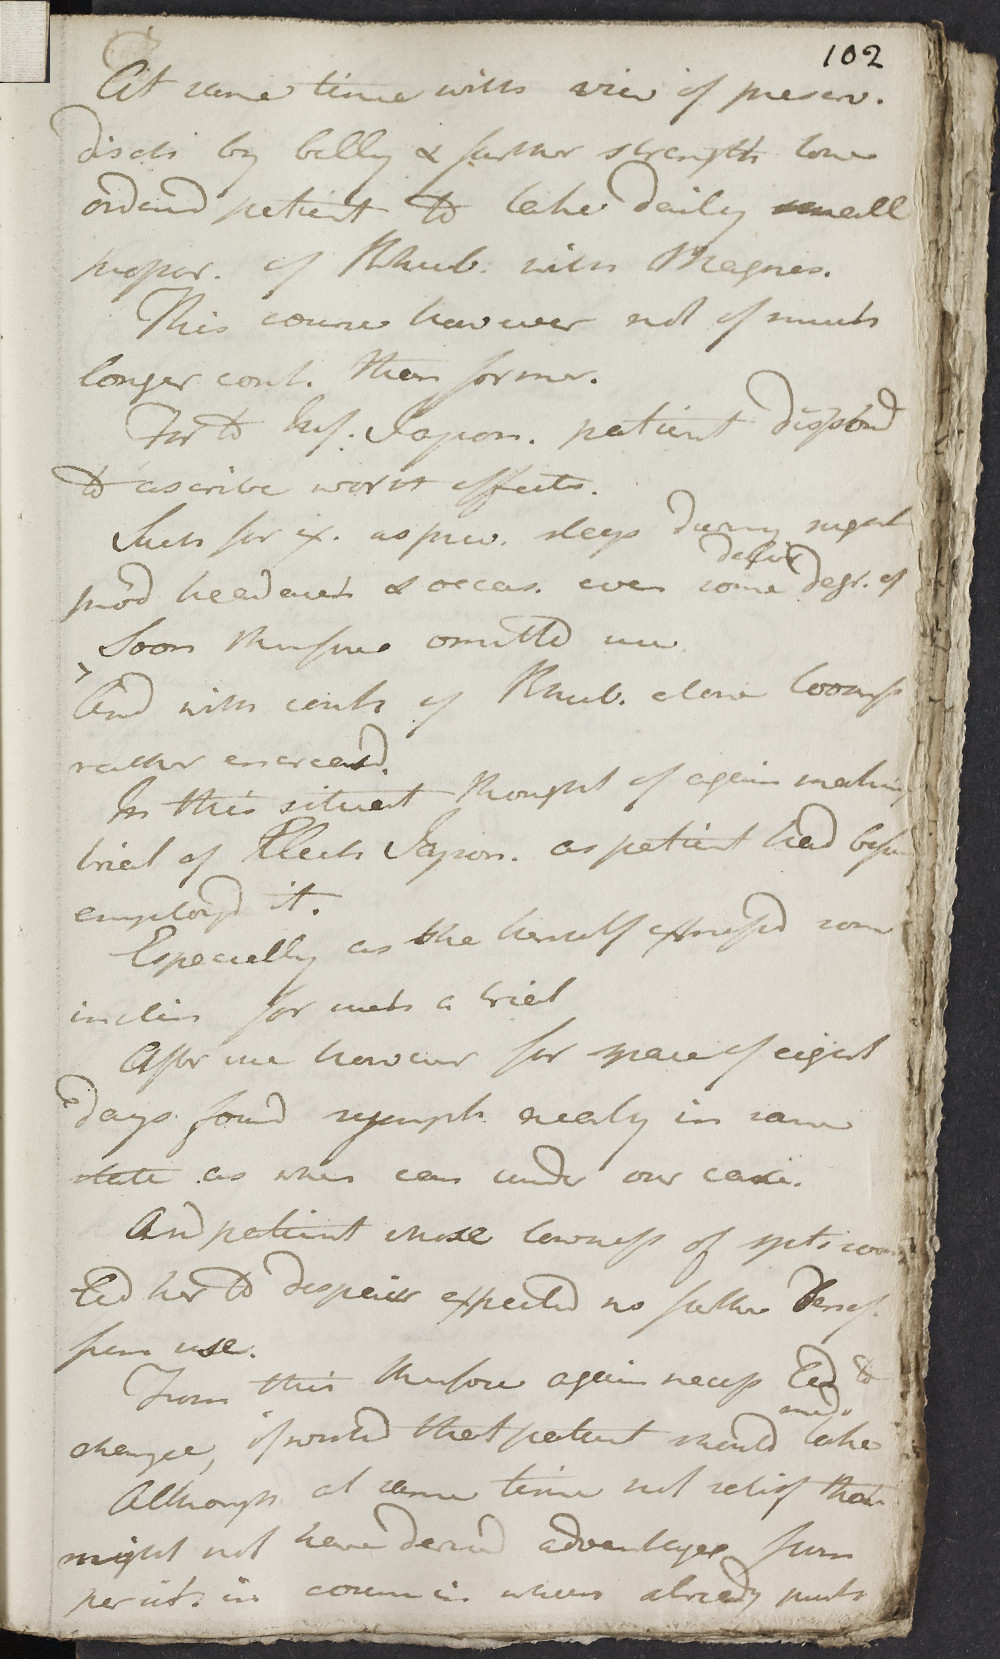 102
At same time with view of preserv.
disch by belly & further strength tone
ordered patient to take daily small
propor. of Rhub. with Magnes.
This course however not of much
longer cont. than former.
For to Inf. Japon. patient dispos'd
to ascribe worst effects.
Such for ex. as prev. sleep during night
delir
prod headach & occas. even some degr. of
Soon therefore omitted use
And with cont. of Rhub. alone looseness
rather encreas'd.
In this situat thought of again making
trial of Elect. Japon. as patient had before
employ'd it.
Especially as she herself express'd some
inclin for such a trial
After use however for space of eight
days found sympt. nearly in same
state as when came under our care.
And patient whose lowness of spts
led her to despair expected no further benef.
from use.
From this therefore again necess led to
med.
change, if wished that patient should take
Although at same time not satisf that
might not have deriv'd advantages from
persist. in course in which already